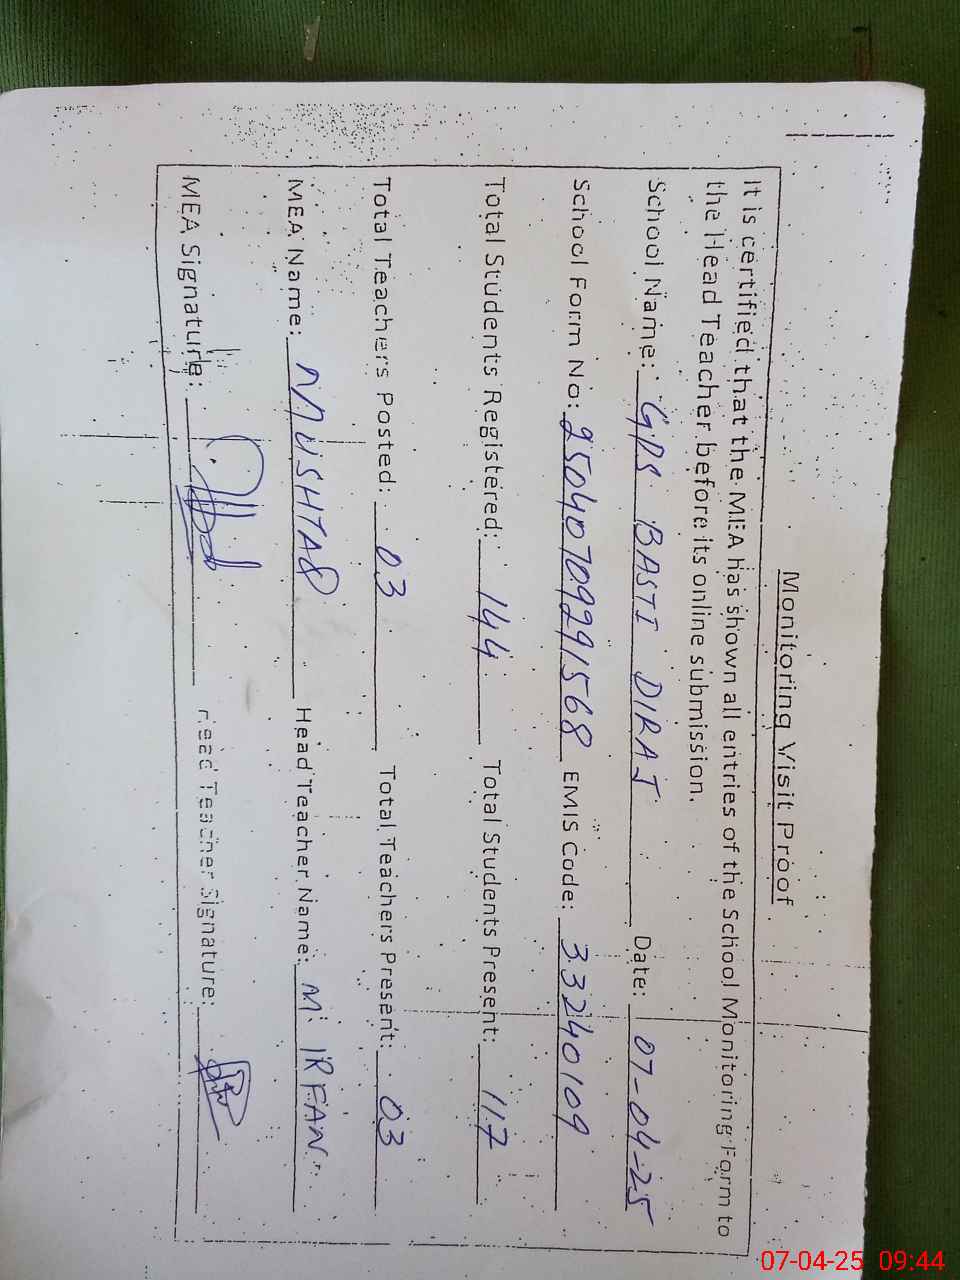 Monitoring Visit Proof
It is certified that the MEA has shown all entries of the School Monitoring Form to
the Head Teacher before its online submission.
School Name: GPS BASTI DIRAJ Date: 07-04-25
School Form No: 25040709291568 EMIS Code: 33240109
Total Students Registered: 144 Total Students Present: 117
Total Teachers Posted: 03 Total Teachers Present: 03
MEA Name: MUSHTAQ Head Teacher Name: M. IRFAN
MEA Signature: Head Teacher Signature:
07-04-25 09:44